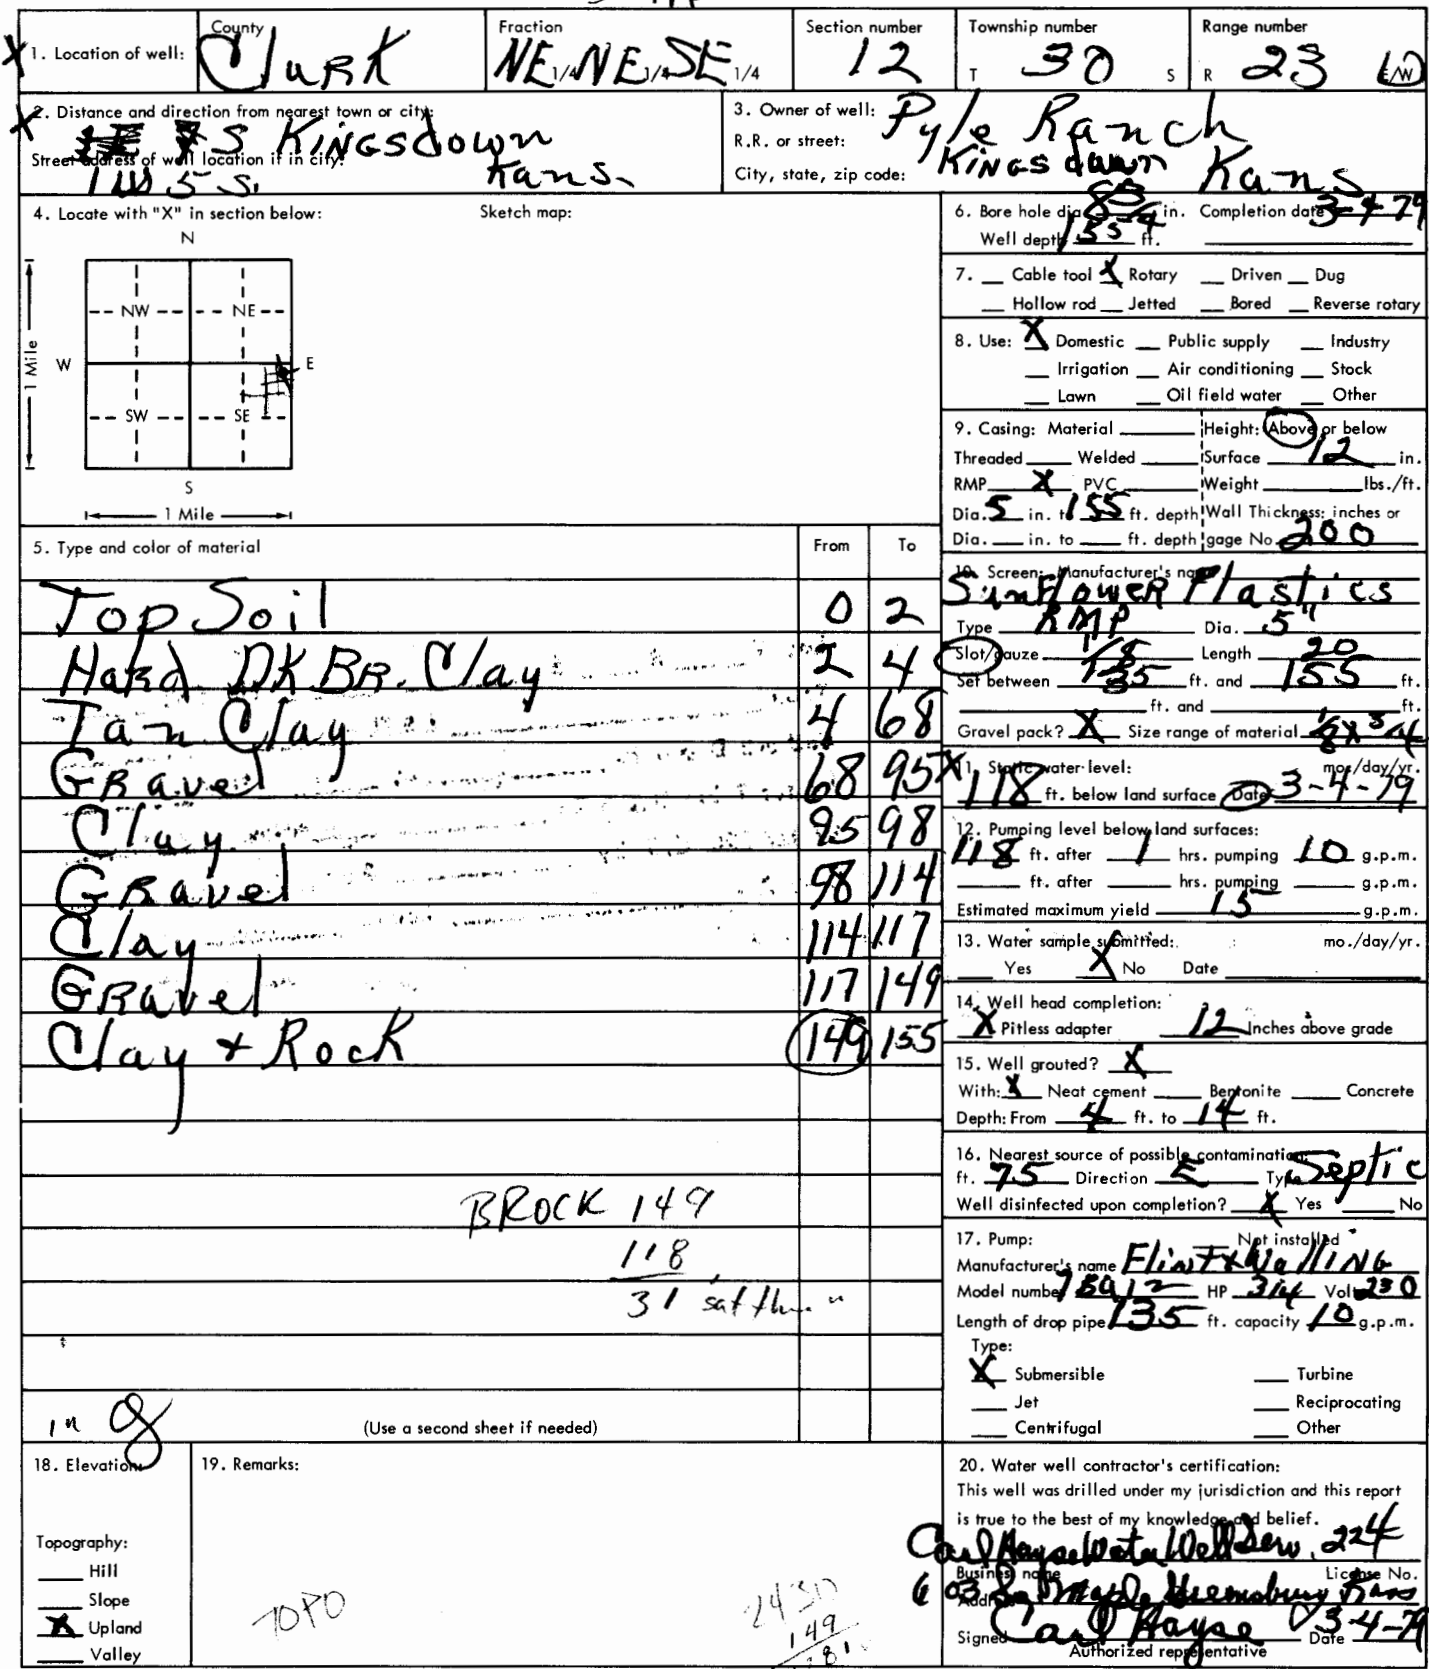 County Fraction Section number Township number Range number
X 1. Location of well: Clark NE 1/4 NE 1/4 SE 1/4 12 T 30 S R 23 E/W
X 2. Distance and direction from nearest town or city:
S Kingsdown
Street address of well location if in city: Kans.
1W 5 S.
3. Owner of well: Pyle Ranch
R.R. or street:
City, state, zip code: Kingsdown Kans
4. Locate with "X" in section below: Sketch map:
N
NW NE
W E
SW SE
S
1 Mile
1 Mile
5. Type and color of material From To
Top Soil 0 2
Hard DK BR. Clay 2 4
Tan Clay 4 68
Gravel 68 95
Clay 95 98
Gravel 98 114
Clay 114 117
Gravel 117 149
Clay + Rock 149 155
BROCK 149
118
31 sat
in
(Use a second sheet if needed)
6. Bore hole dia. in. Completion date 3-4-79
Well depth 155 ft.
7. Cable tool X Rotary Driven Dug
Hollow rod Jetted Bored Reverse rotary
8. Use: X Domestic Public supply Industry
Irrigation Air conditioning Stock
Lawn Oil field water Other
9. Casing: Material Height: Above or below
Threaded Welded Surface 12 in.
RMP X PVC Weight lbs./ft.
Dia. 5 in. to 155 ft. depth Wall Thickness: inches or
Dia. in. to ft. depth gage No. 200
10. Screen: Manufacturer's name
Sunflower Plastics
Type RMP Dia. 5"
Slot/gauze 1/8 Length 20
Set between 135 ft. and 155 ft.
ft. and ft.
Gravel pack? X Size range of material 1/8 x 3/4
X 11. Static water level: mo./day/yr.
118 ft. below land surface Date 3-4-79
12. Pumping level below land surfaces:
118 ft. after 1 hrs. pumping 10 g.p.m.
ft. after hrs. pumping g.p.m.
Estimated maximum yield 15 g.p.m.
13. Water sample submitted: mo./day/yr.
Yes X No Date
14. Well head completion:
X Pitless adapter 12 Inches above grade
15. Well grouted? X
With: X Neat cement Bentonite Concrete
Depth: From 4 ft. to 14 ft.
16. Nearest source of possible contamination:
ft. 75 Direction E Type Septic
Well disinfected upon completion? X Yes No
17. Pump: Not installed
Manufacturer's name Flint & Walling
Model number HP 3/4 Volts 230
Length of drop pipe 135 ft. capacity 10 g.p.m.
Type:
X Submersible Turbine
Jet Reciprocating
Centrifugal Other
18. Elevation:
Topography:
Hill
Slope
X Upland
Valley
19. Remarks:
TOPO
2430
149
20. Water well contractor's certification:
This well was drilled under my jurisdiction and this report
is true to the best of my knowledge and belief.
Carl Hayse Water Well Serv. 224
Business name License No.
603 So Maple Greensburg Kans
Address
Signed Carl Hayse Date 3-4-79
Authorized representative